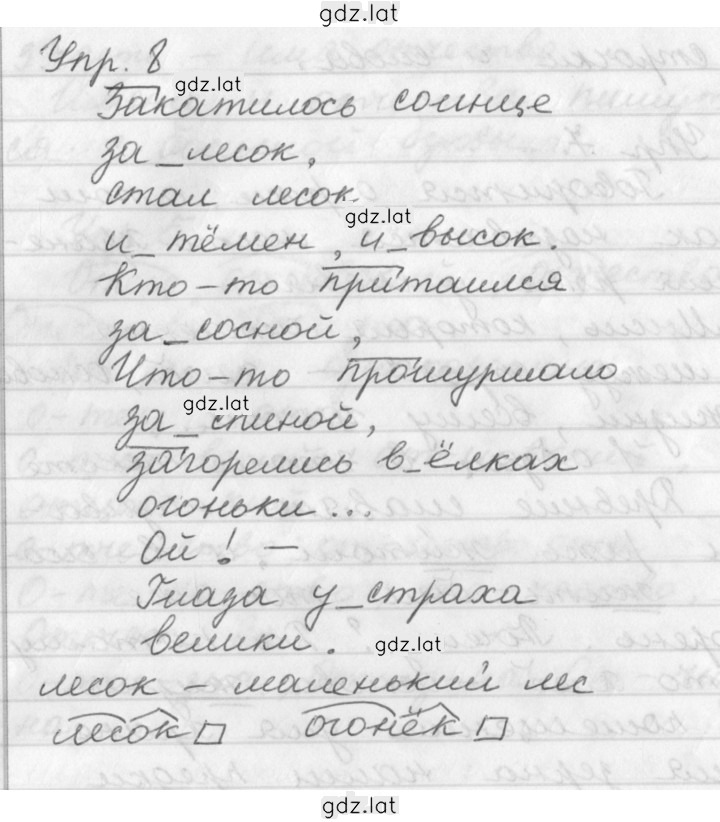 gdz.lat
Упр. 8
gdz.lat
Закатилось солнце
за_лесок,
стал лесок
gdz.lat
и_тёмен, и_высок.
Кто-то притаился
за_сосной,
Что-то прошуршало
gdz.lat
за_спиной,
загорелись в_ёлках
огоньки...
Ой! –
Глаза у_страха
велики.
gdz.lat
лесок – маленький лес
лесок□ огонёк□
gdz.lat